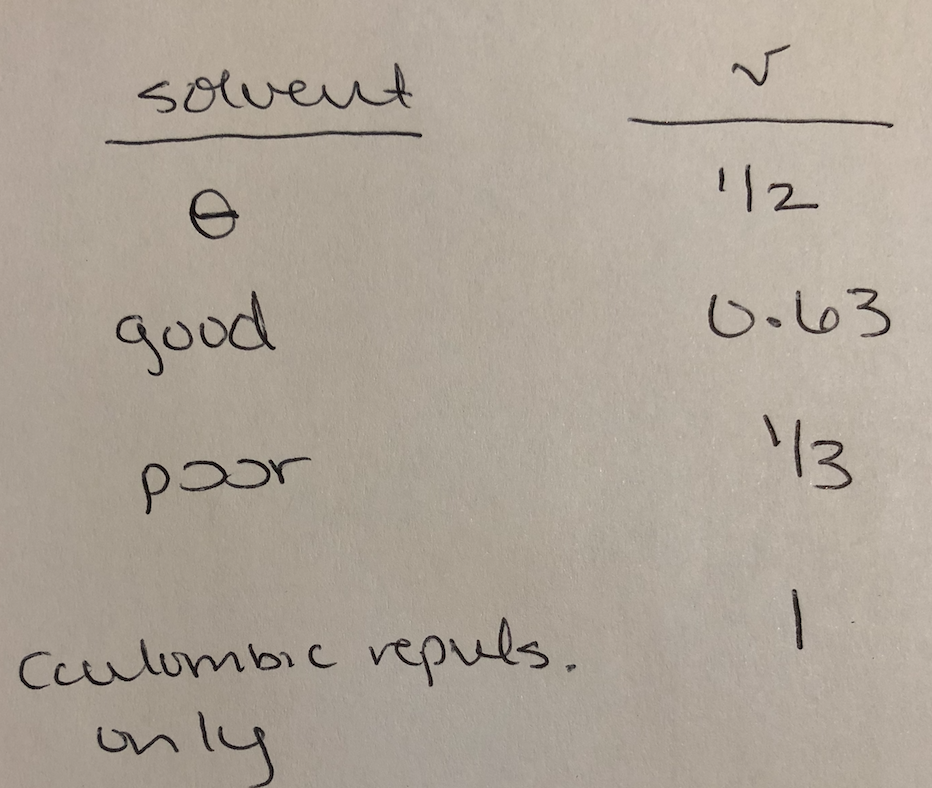 solvent ν
θ 1/2
good 0.63
poor 1/3
Coulombic repuls. 1
only